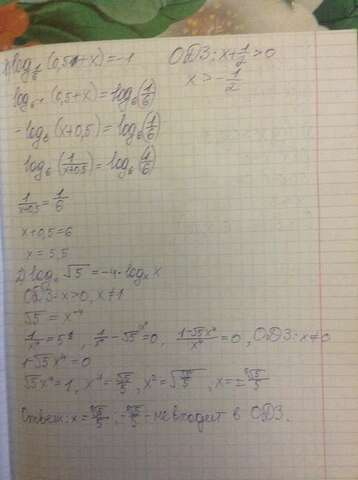 1) log_{1/6} (0,5+x) = -1   ОДЗ: x+1/2>0
x>-1/2
log_{6^{-1}} (0,5+x) = log_6 (1/6)
-log_6 (x+0,5) = log_6 (1/6)
log_6 (1/(x+0,5)) = log_6 (1/6)
1/(x+0,5) = 1/6
x+0,5=6
x=5,5
2) log_x √5 = -4·log_x x
ОДЗ: x>0, x≠1
√5 = x^{-4}
1/x⁴ - √5 = 0, (1-√5x⁴)/x⁴ = 0, ОДЗ: x≠0
1-√5x⁴=0
√5x⁴=1,
Ответ: x= - не входит в ОДЗ.